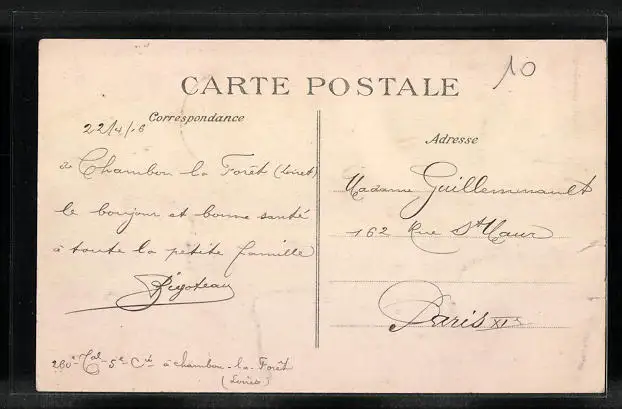 10
CARTE POSTALE
Correspondance
22/4/16
à Chambon la Forêt (Loiret)
le bonjour et bonne santé
à toute la petite famille
Rigoteau
260e Tal - 5e Cie à Chambon-la-Forêt
(Loiret)
Adresse
Madame Guillemenault
162 Rue St Maur
Paris XIe